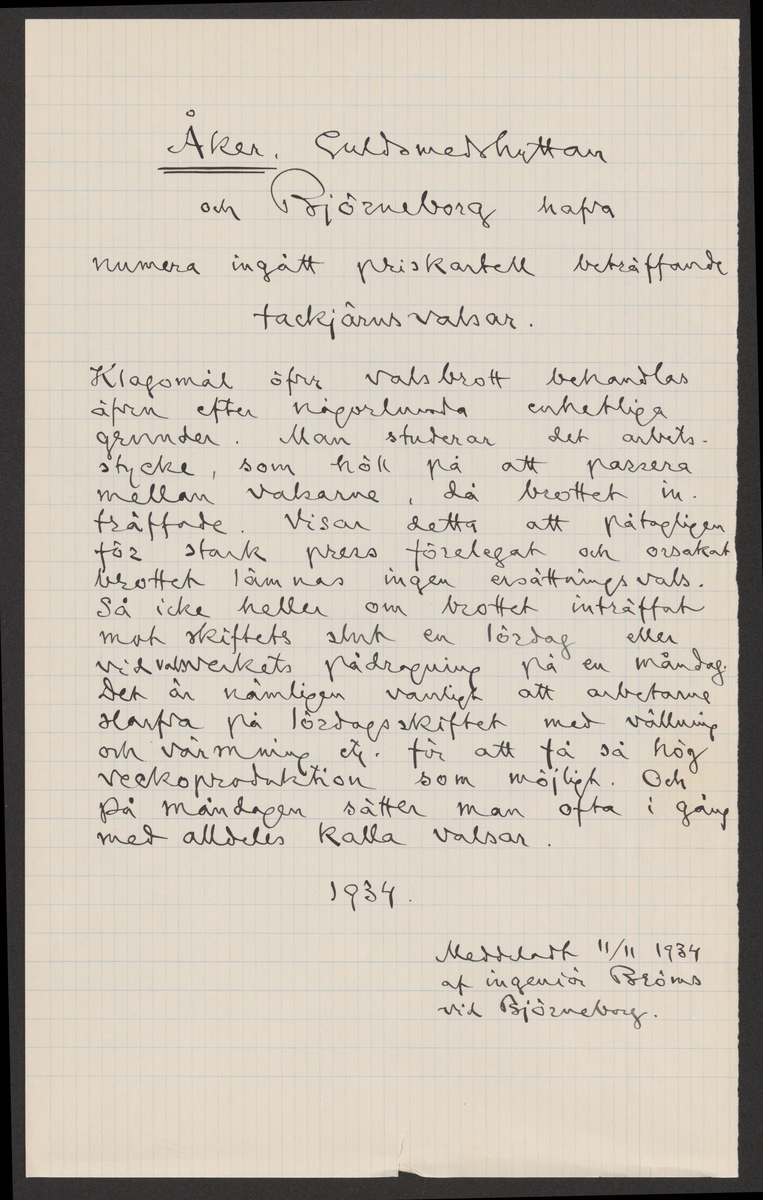 Åker, Guldsmedshyttan
och Björneborg hafva
numera ingått priskartell beträffande
tackjärnsvalsar.
Klagomål öfver valsbrott behandlas
äfven efter någorlunda enhetliga
grunder. Man studerar det arbets-
stycke, som höll på att passera
mellan valsarne, då brottet in-
träffade. Visar detta att påtagligen
för stark press förelegat och orsakat
brottet lämnas ingen ersättningsvals.
Så icke heller om brottet inträffat
mot skiftets slut en lördag eller
vid valsverkets pådragning på en måndag.
Det är nämligen vanligt att arbetarne
slarfva på lördagsskiftet med vällning
och värmning etc. för att få så hög
veckoproduktion som möjligt. Och
på måndagen sätter man ofta i gång
med alldeles kalla valsar.
1934.
Meddeladt 11/11 1934
af ingeniör Bröms
vid Björneborg.